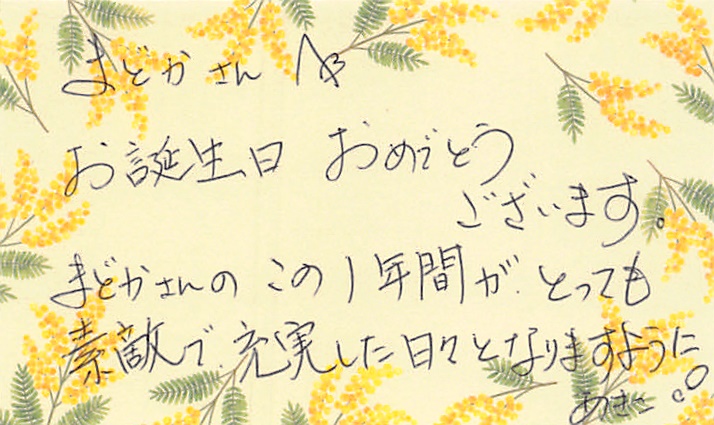 まどかさんへ
お誕生日 おめでとう
ございます。
まどかさんの この1年間が とっても
素敵で 充実した日々となりますように
あきこ